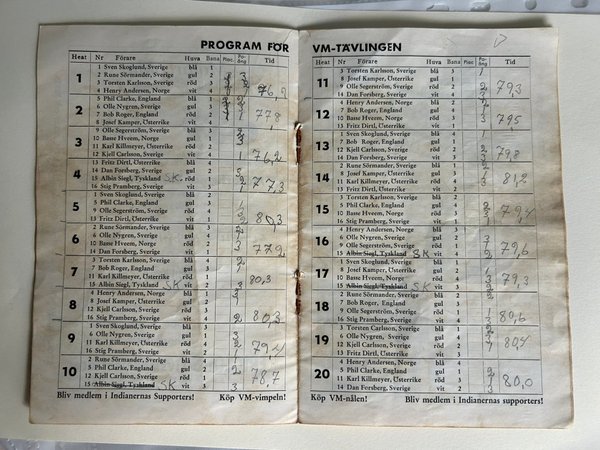 PROGRAM FÖR
Heat Nr Förare Huva Bana Plac. Poäng Tid
1
1 Sven Skoglund, Sverige blå
2 Rune Sörmander, Sverige gul 2 3
3 Torsten Karlsson, Sverige röd 3
4 Henry Andersen, Norge vit 4
2
5 Phil Clarke, England blå
6 Olle Nygren, Sverige gul
7 Bob Roger, England röd
8 Josef Kamper, Österrike vit 77,8
3
9 Olle Segerström, Sverige blå 3
10 Basse Hveem, Norge gul 1
11 Karl Killmeyer, Österrike röd 2
12 Kjell Carlsson, Sverige vit 4 76,2
4
13 Fritz Dirtl, Österrike blå 4
14 Dan Forsberg, Sverige gul 2
15 Albin Siegl, Tyskland SK röd 1
16 Stig Pramberg, Sverige vit 3 77,3
5
1 Sven Skoglund, Sverige blå 2
5 Phil Clarke, England gul 1
9 Olle Segerström, Sverige röd 4
13 Fritz Dirtl, Österrike vit 3 80,3
6
2 Rune Sörmander, Sverige blå 3
6 Olle Nygren, Sverige gul 4
10 Basse Hveem, Norge röd 2
14 Dan Forsberg, Sverige vit 1 77,2
7
3 Torsten Karlsson, Sverige blå 4
7 Bob Roger, England gul 2
11 Karl Killmeyer, Österrike röd 1
15 Albin Siegl, Tyskland SK vit 3 80,3
8
4 Henry Andersen, Norge blå 1
8 Josef Kamper, Österrike gul 3
12 Kjell Carlsson, Sverige röd
16 Stig Pramberg, Sverige vit 2 80,3
9
1 Sven Skoglund, Sverige blå 3
6 Olle Nygren, Sverige gul 1
11 Karl Killmeyer, Österrike röd 4
16 Stig Pramberg, Sverige vit 2 79,4
10
2 Rune Sörmander, Sverige blå 4
5 Phil Clarke, England gul 2
12 Kjell Carlsson, Sverige röd 1
15 Albin Siegl, Tyskland SK vit 3 78,7
Bliv medlem i Indianernas Supporters! Köp VM-vimpeln!
VM-TÄVLINGEN
Heat Nr Förare Huva Bana Plac. Poäng Tid
11
3 Torsten Karlsson, Sverige blå 3
8 Josef Kamper, Österrike gul 2
9 Olle Segerström, Sverige röd 1
14 Dan Forsberg, Sverige vit 4 79,3
12
4 Henry Andersen, Norge blå 2
7 Bob Roger, England gul 4
10 Basse Hveem, Norge röd 3
13 Fritz Dirtl, Österrike vit 1 79,5
13
1 Sven Skoglund, Sverige blå 4
7 Bob Roger, England gul 1
12 Kjell Carlsson, Sverige röd 2
14 Dan Forsberg, Sverige vit 3 79,8
14
2 Rune Sörmander, Sverige blå 1
8 Josef Kamper, Österrike gul
11 Karl Killmeyer, Österrike röd 3
13 Fritz Dirtl, Österrike vit 2 81,2
15
3 Torsten Karlsson, Sverige blå 2
5 Phil Clarke, England gul 4
10 Basse Hveem, Norge röd 3
16 Stig Pramberg, Sverige vit 1 79,4
16
4 Henry Andersen, Norge blå 3
6 Olle Nygren, Sverige gul 2
9 Olle Segerström, Sverige röd
15 Albin Siegl, Tyskland SK vit 4 79,6
17
1 Sven Skoglund, Sverige blå 1
8 Josef Kamper, Österrike gul 2
10 Basse Hveem, Norge röd 4
15 Albin Siegl, Tyskland SK vit 3 79,3
18
2 Rune Sörmander, Sverige blå 2
7 Bob Roger, England gul 3
9 Olle Segerström, Sverige röd 1
16 Stig Pramberg, Sverige vit 4 80,6
19
3 Torsten Carlsson, Sverige blå 1
6 Olle Nygren, Sverige gul 4
12 Kjell Carlsson, Sverige röd 2
13 Fritz Dirtl, Österrike vit 3 80,4
20
4 Henry Andersen, Norge blå 4
5 Phil Clarke, England gul 3
11 Karl Killmeyer, Österrike röd
14 Dan Forsberg, Sverige vit 2 80,0
Köp VM-nålen! Bliv medlem i Indianernas supporters!